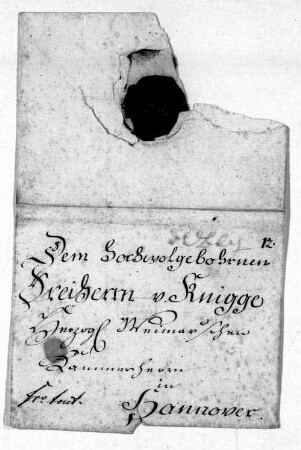 12.
Dem Hochwolgebohrnen
Freiherrn v. Knigge
Herzogl Weimar'schen
Kammerherrn
in
fro. tout. Hannover.